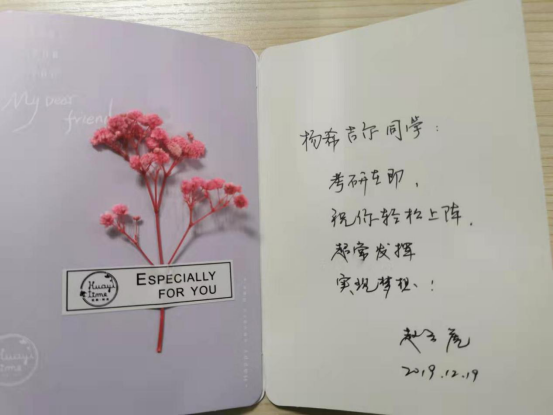 My Dear
friend
Huayi
time
ESPECIALLY
FOR YOU
Huayi
time
杨希吉尔同学：
考研在即，
祝你轻松上阵，
超常发挥
实现梦想！
2019.12.19